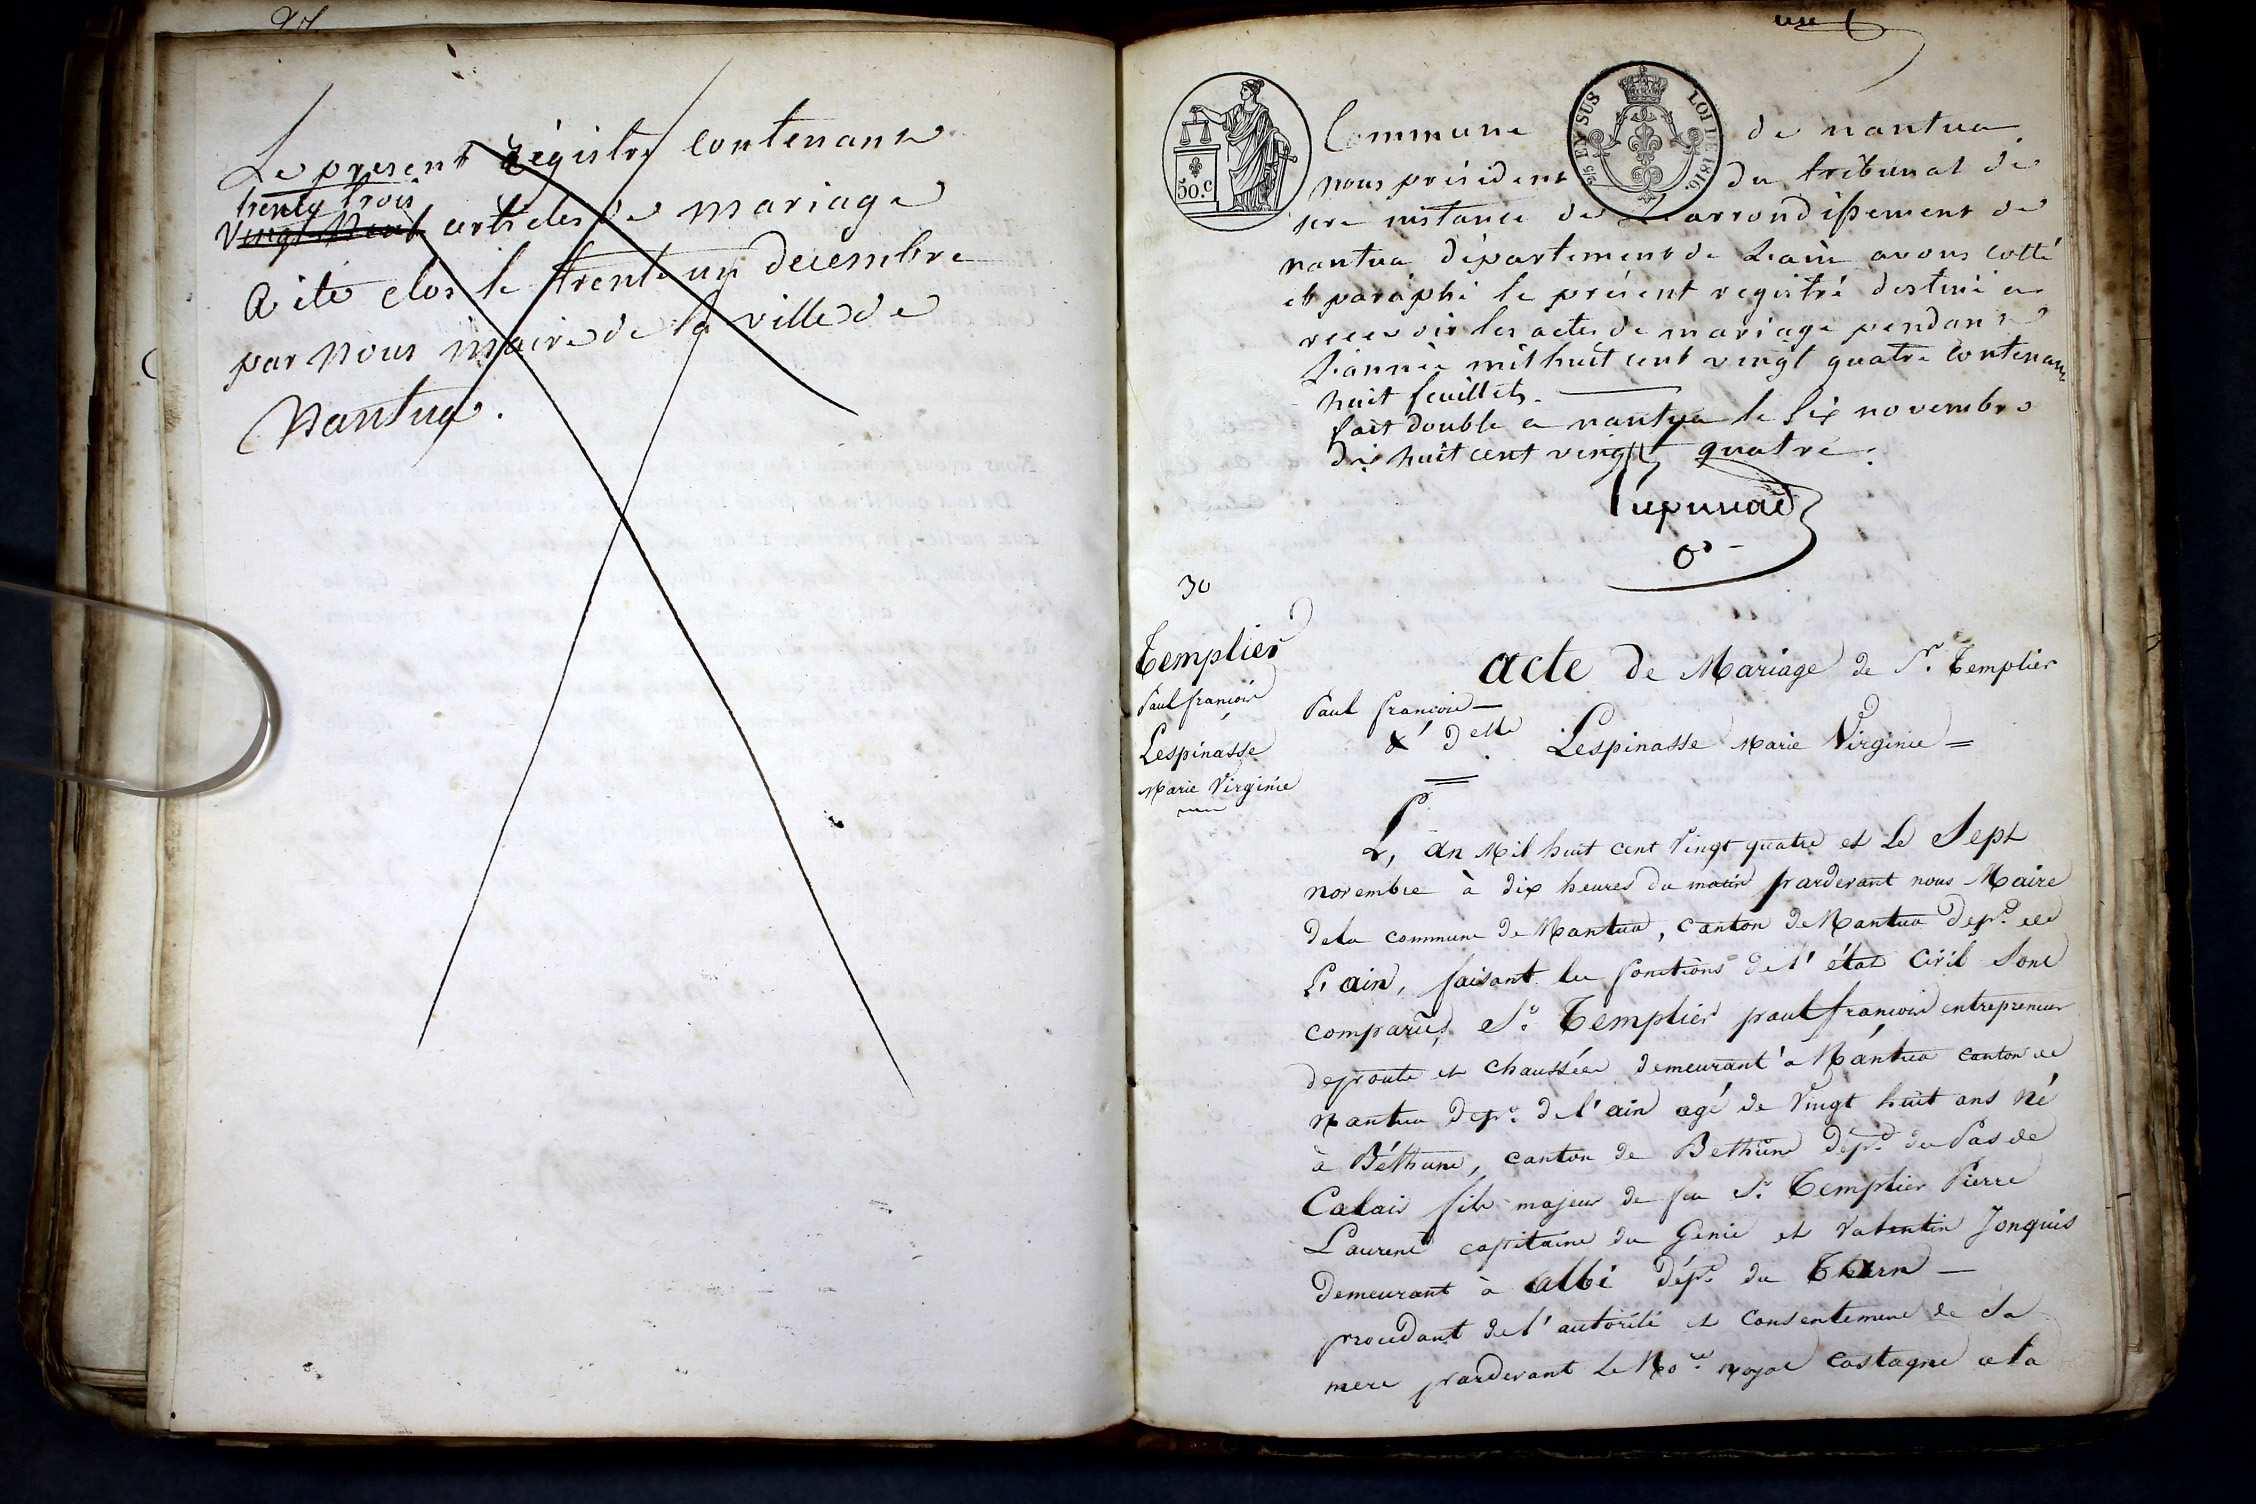 Le present Régistre contenant
trente trois
Vingt Neuf articles de mariage
a été clos le trente un decembre
par nous maire de la ville de
Nantua.
un
50.c
25 EN SUS
LOI DE 1816.
Commune de nantua
nous président du tribunal de
1ere instance de L'arrondissement de
nantua département de L'ain avons cotté
et paraphé le présent registre destiné a
recevoir les actes de mariage pendant
L'année mil huit cent vingt quatre contenant
huit feuillets.
fait double a nantua le six novembre
dix huit cent vingt quatre.
30
Templier
Paul francois
Lespinasse
Marie Virginie
acte de Mariage de Sr. Templier
Paul francois
& delle Lespinasse Marie Virginie =
L'an Mil huit cent Vingt quatre et Le Sept
novembre à dix heures du matin pardevant nous Maire
de la commune de Nantua, canton de Nantua dept. de
L'ain, faisant les fonctions de l'état Civil Sont
comparus, Sr. Templier paul francois entrepreneur
de route et chaussées demeurant à Nantua canton de
Nantua dept. de l'ain agé de Vingt huit ans Né
à Béthune, canton de Bethune dépt. du Pas de
Calais fils majeur de feu Sr. Templier Pierre
Laurent capitaine du Genie et Valentin Jonquis
demeurant à albi dépt. du Tharn
procedant de l'autorité et consentement de Sa
mere pardevant Le Nore. royal Castagne a la